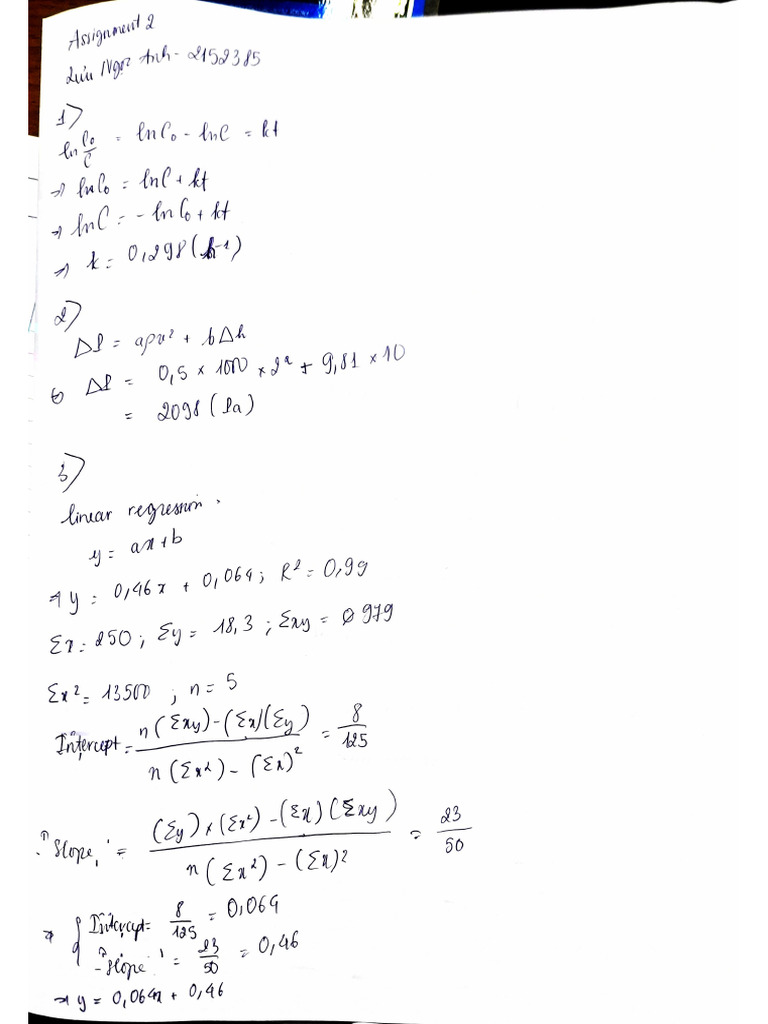 Assignment 2
Lưu Ngọc Anh - 2152385
1)
ln C₀/C = lnC₀ - lnC = kt
⇒ lnC₀ = lnC + kt
⇒ lnC = - lnC₀ + kt
⇒ k = 0,298 (h⁻¹)
2)
ΔP = aρv² + bΔh
⇔ ΔP = 0,5 × 1000 × 2² + 9,81 × 10
= 2098 (Pa)
3)
linear regression.
y = ax + b
⇒ y = 0,46x + 0,064 ; R² = 0,99
Σx = 250 ; Σy = 18,3 ; Σxy = 979
Σx² = 13500 ; n = 5
Intercept = (n(Σxy) - (Σx)(Σy)) / (n(Σx²) - (Σx)²) = 8/125
"Slope" = ((Σy) × (Σx²) - (Σx)(Σxy)) / (n(Σx²) - (Σx)²) = 23/50
⇒ { Intercept = 8/125 = 0,064
"Slope" = 23/50 = 0,46
⇒ y = 0,064x + 0,46